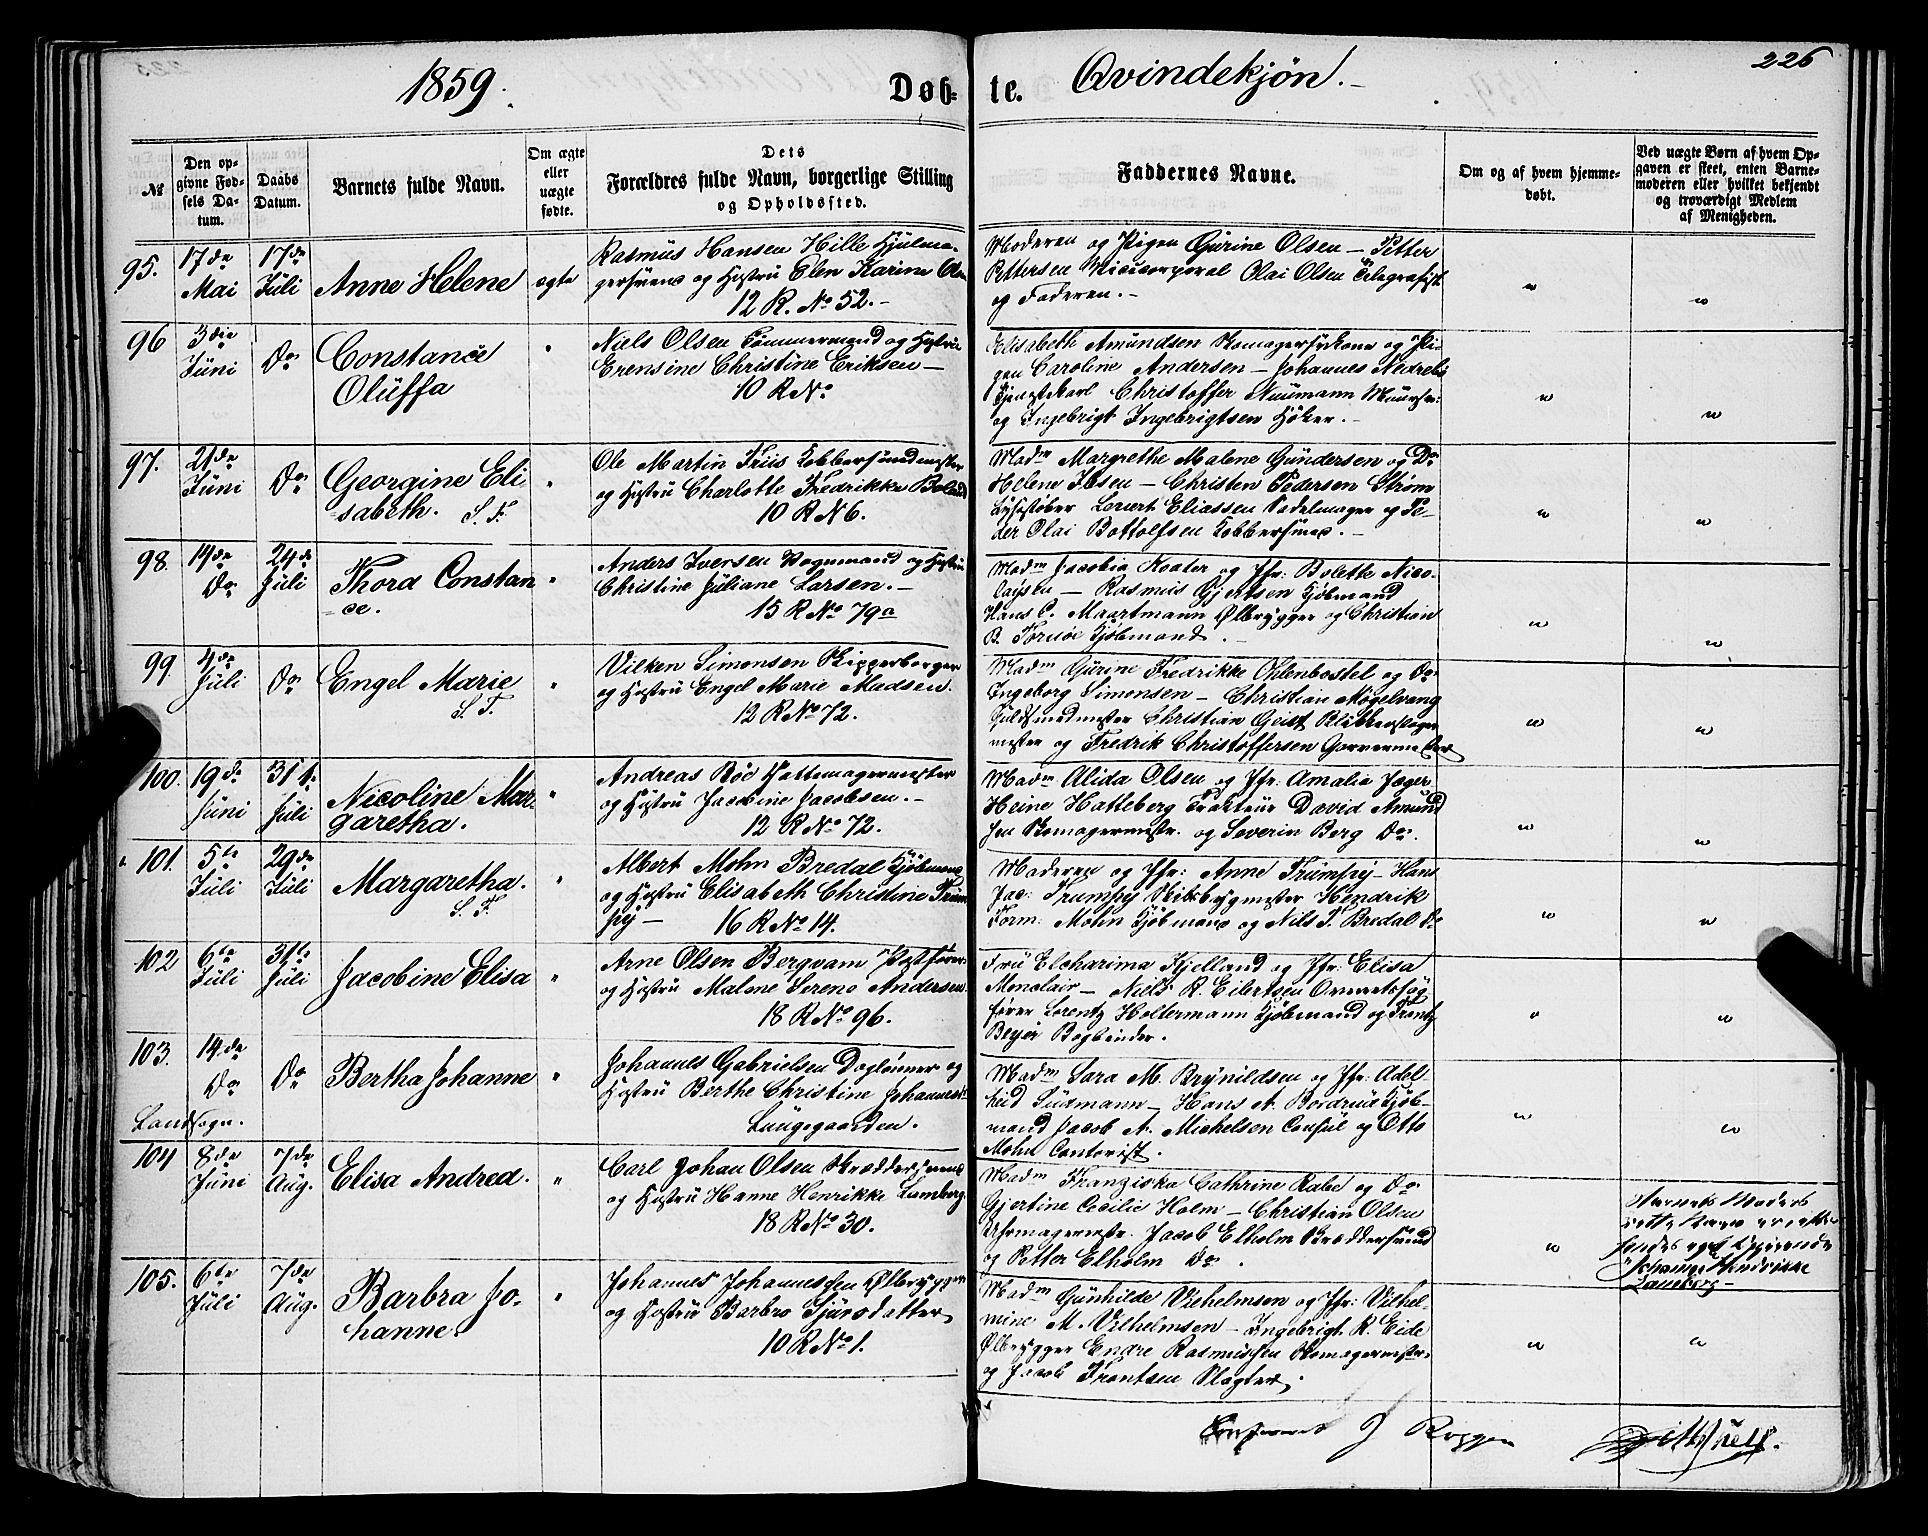 1859.
Døb-
te.
Qvindekjøn.-
226
No
Den op-
givne Fød-
sels Da-
tum.
Daabs
Datum.
Barnets fulde Navn.
Om ægte
eller
uægte
fødte.
Dets
Forældres fulde Navn, borgerlige Stilling
og Opholdssted.
Faddernes Navne.
Om og af hvem hjemme-
døbt.
Ved uægte Børn af hvem Op-
gaven er skeet, enten Barne-
moderen eller hvilket bekjendt
og troværdigt Medlem
af Menigheden.
95.
17de
Mai
17de
Juli
Anne Helene
ægte
Rasmus Hansen Hille Hjulma-
gersvend og Hustru Elen Karine Olsen
12 R. No 52.-
Moderen og Pigen Gurine Olsen - Petter
Pettersen Vicecorporal Olai Olsen Telegrafist
og Faderen.-
96
3die
Juni
Do
Constance
Oluffa
Niels Olsen Tømmermand og Hustru
Erensine Christine Eriksen -
10 R No
Elisabeth Amundsen Skomagerkone og Pi-
gen Caroline Andersen - Johannes Nedrebø
Tjenestekarl Christoffer Nuumann Muursv:
og Ingebrigt Ingebrigtsen Høker.-
97.
21de
Juni
Do
Georgine Eli-
sabeth. S. F.
Ole Martin Friis Kobbersmedmester
og Hustru Charlotte Fredrikke
10 R N 6.
Madm Margrethe Malene Gundersen og Do
Helene Ibsen - Christen Pedersen Strøm
Lysestøber Lenert Eliassen Sadelmager og Pe-
der Olai Bottolfsen Kobbersmed.-
98.
14de
Do
24de
Juli
Thora Constan-
ce.
Anders Iversen Vognmand og Hustru
Christine Juliane Larsen.-
15 R No 79a
Madm Jacobia Koater og Jfr: Bolette Nico-
laysen - Rasmus Gjertsen Kjøbmand
Hans C. Maartmann Ølbrygger og Christian
B. Tornøe Kjøbmand.-
99.
4de
Juli
Do
Engel Marie
S. F.
Vilken Simonsen Skipperborger
og Hustru Engel Marie Madsen.
12 R No 72.
Madm Gurine Fredrikke Ohlenbostel og Do
Ingeborg Simonsen - Christian Møgelvang
Guldsmedmester Christian Geist Blikkenslager-
mester og Fredrik Christoffersen Garvermester
100.
19de
Juni
31te
Juli
Nicoline Mar-
garetha.
Andreas Bøe Hattemagermester
og Hustru Jacobine Jacobsen.-
12 R No 72.
Madm Alida Olsen og Jfr: Amalia Jæger
Heine Hatteberg Trakteur David Amund-
sen Skomagermestr. og Severin Berg Do.
101.
5te
Juli
29de
Juli
Margaretha.
S. F.
Albert Mohn Bredal Kjøbmand
og Hustru Elisabeth Christine Trum-
py - 16 R No 14.
Moderen og Jfr: Anne Trumpy - Hans
Jac: Trumpy Skibsbygmester Hendrik
Form: Mohn Kjøbmand og Nils T. Bredal Do
102
6te
Juli
31te
Juli
Jacobine Elisa
Arne Olsen Bergvam Postfører
og Hustru Malene Serene Andersen.
18 R No 96.
Fru Elcharima Kjelland og Jfr: Elisa
Monclair - Niels R. Eilertsen Overretssag-
fører Lorentz Holtermann Kjøbmand og Frantz
Beyer Bogbinder.
103.
14de
Do
Landsogn.
Do
Bertha Johanne
Johannes Gabrielsen Dagløner og
Hustru Berthe Christine Johannesd:
Lungegaarden.
Madm Sara M. Brynildsen og Jfr: Adel-
heid Sudmann - Hans A. Bordrue Kjøb-
mand Jacob A. Michelsen Consul og Otto
Mohn Contorist.
104
8de
Juni
7de
Aug.
Elisa Andrea.
Carl Johan Olsen Skræddersvend
og Hustru Hanne Henrikke Lamberg.
18 R No 30.
Madm Franziska Cathrine Rabe og Do
Gjertine Cecilie Holm - Christian Olsen
Uhrmagermestr. Jacob Elholm Skræddersvend
og Petter Elholm Do.
Barnets Moders
rette Navn er
Johanne Hendrikke
105.
6te
Juli
7de
Aug.
Barbra Jo-
hanne
Johannes Johannessen Ølbrygger
og Hustru Barbro Sjursdatter
10 R No 1.
Madm Gunhilde Vilhelmsen og Jfr: Vilhel-
mine M. Vilhelmsen - Ingebrigt R. Eide
Ølbrygger Endre Rasmussen Skomagermester
og Jacob Frantsen Slagter.